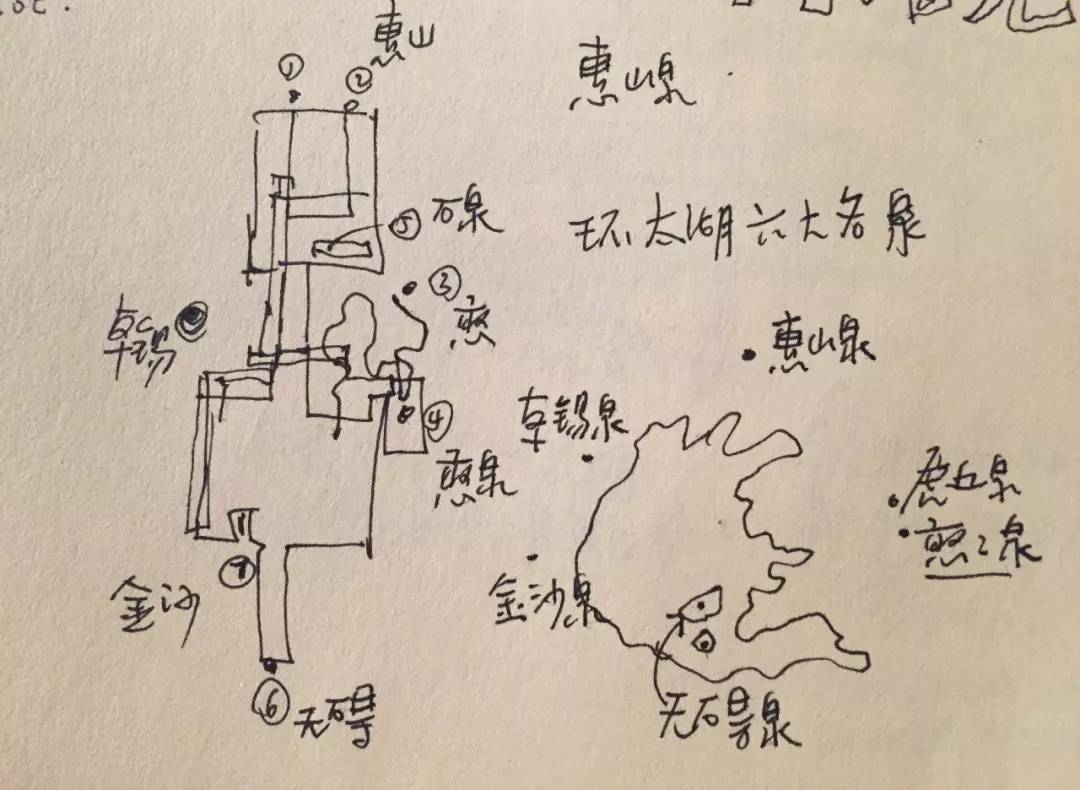 惠山
惠山泉
①
②
⑤ 石泉
环太湖六大名泉
③
憨
惠山泉
④
憨泉
虎丘泉
憨憨泉
⑦
金沙
金沙泉
⑥ 无碍
无碍泉